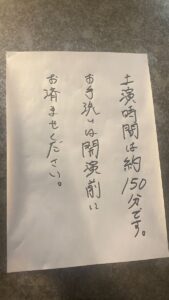 上演時間は約150分です。
お手洗いは開演前に
お済ませください。